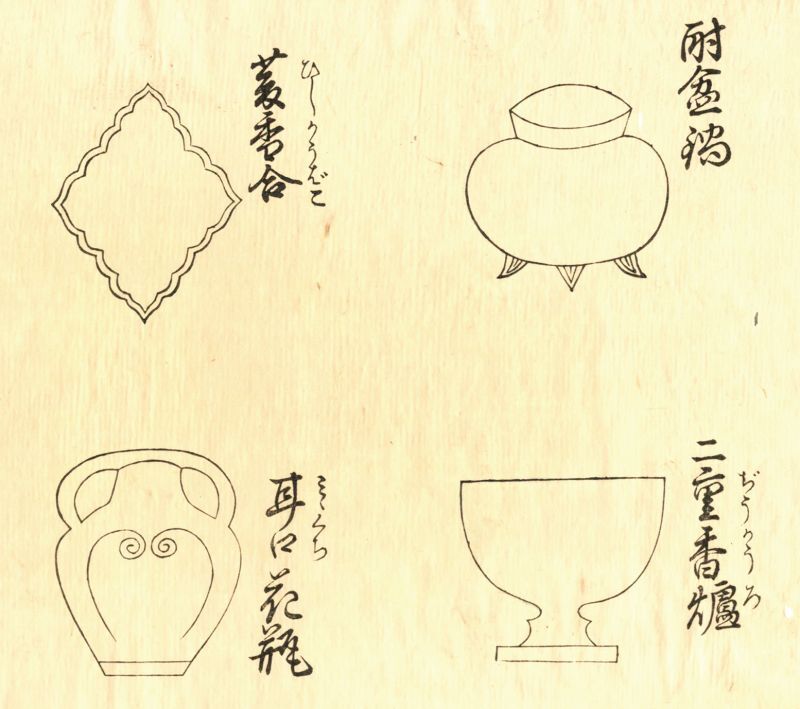 酎盆鍋
二重香爐
ぢうかうろ
菱香合
ひしかうばこ
耳口花瓶
みゝくち